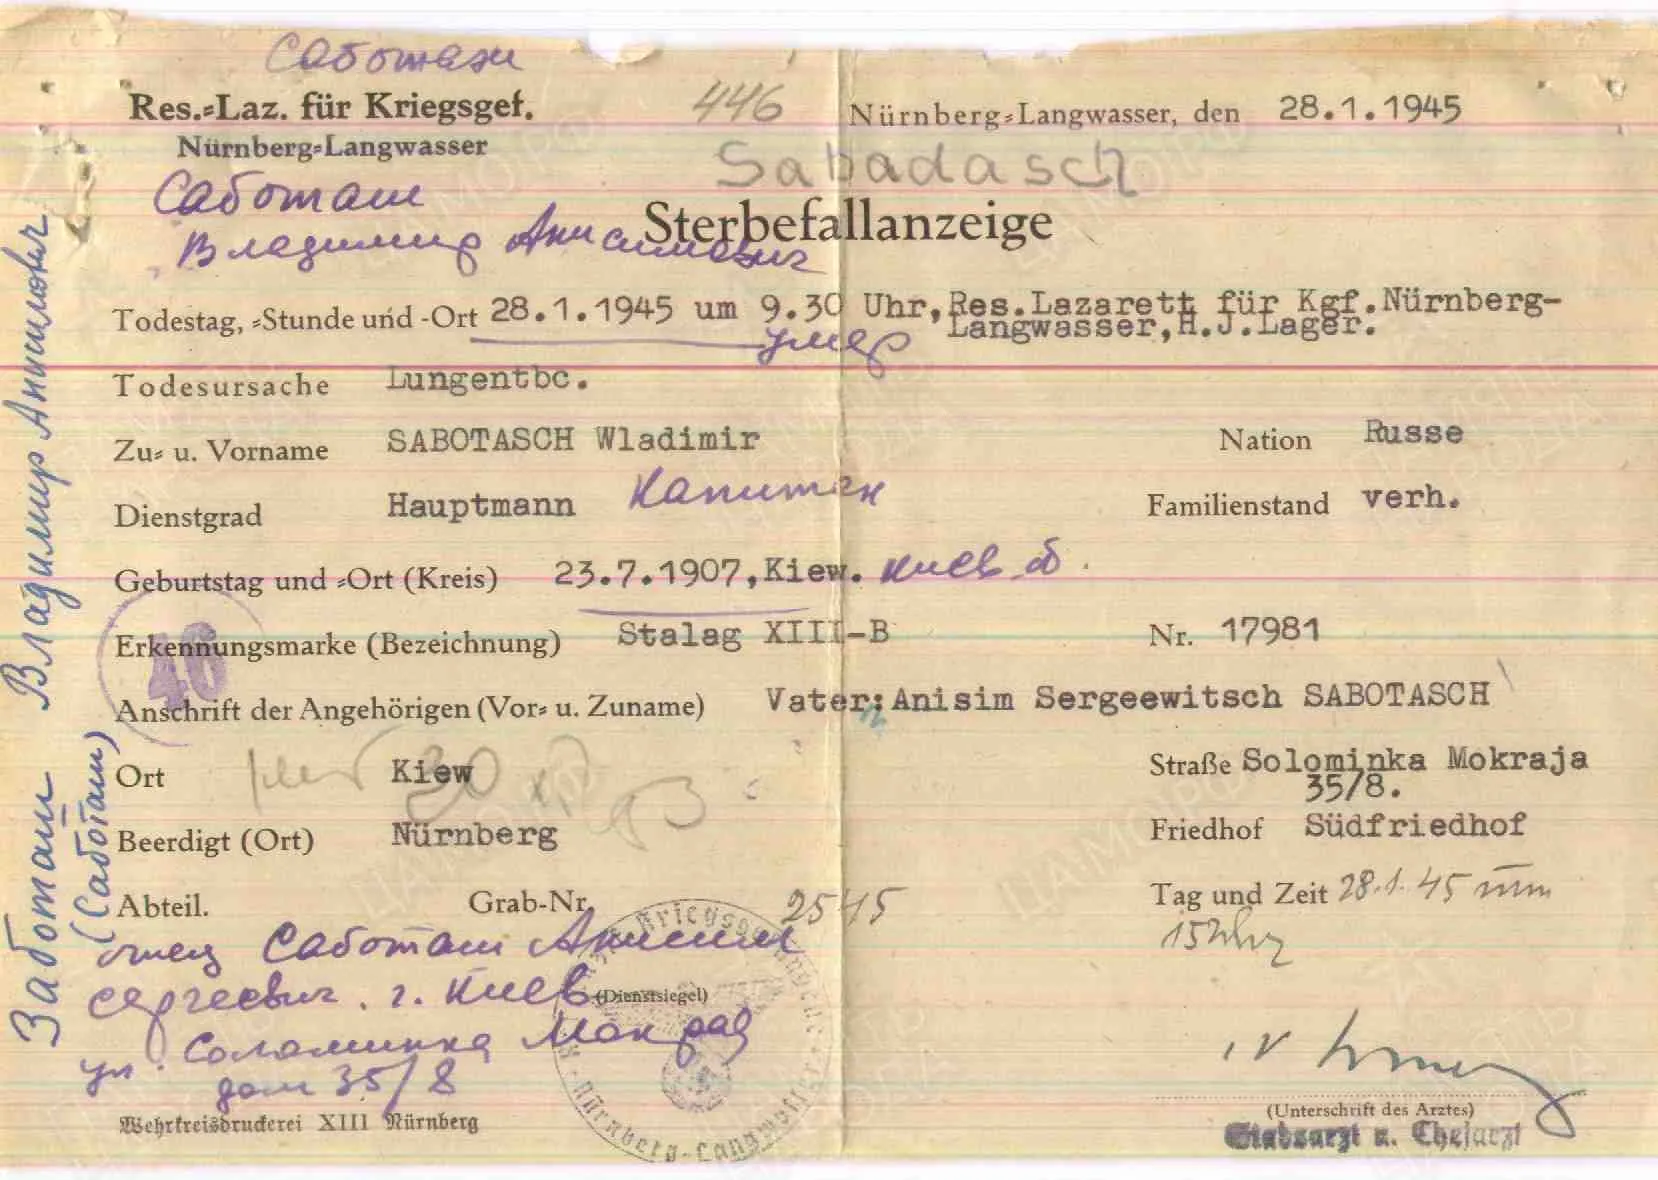 Саботаж
Res.=Laz. für Kriegsgef.
446
Nürnberg=Langwasser, den 28.1.1945
Nürnberg=Langwasser
Sabadasch
Саботаш
Sterbefallanzeige
Владимир Анисимович
Todestag, =Stunde und -Ort 28.1.1945 um 9.30 Uhr, Res.Lazarett für Kgf.Nürnberg-
Langwasser,H.J.Lager.
умер
Todesursache Lungentbc.
Zu= u. Vorname SABOTASCH Wladimir Nation Russe
Dienstgrad Hauptmann Капитан Familienstand verh.
Geburtstag und =Ort (Kreis) 23.7.1907,Kiew. Киев. об.
Erkennungsmarke (Bezeichnung) Stalag XIII-B Nr. 17981
46
Anschrift der Angehörigen (Vor= u. Zuname) Vater:Anisim Sergeewitsch SABOTASCH
Ort Kiew Straße Solominka Mokraja
35/8.
Beerdigt (Ort) Nürnberg Friedhof Südfriedhof
Abteil. Grab-Nr. 2545 Tag und Zeit 28.1.45 um
15 Uhr
отец Саботаш Анисим
Сергеевич. г. Киев
(Dienstsiegel)
ул. Соломинка Мокрая
дом 35/8
(Unterschrift des Arztes)
Wehrkreisdruckerei XIII Nürnberg
Stabsarzt u. Chefarzt
Nürnberg-Langwasser
Заботаш Владимир Анисимович
(Саботаш)